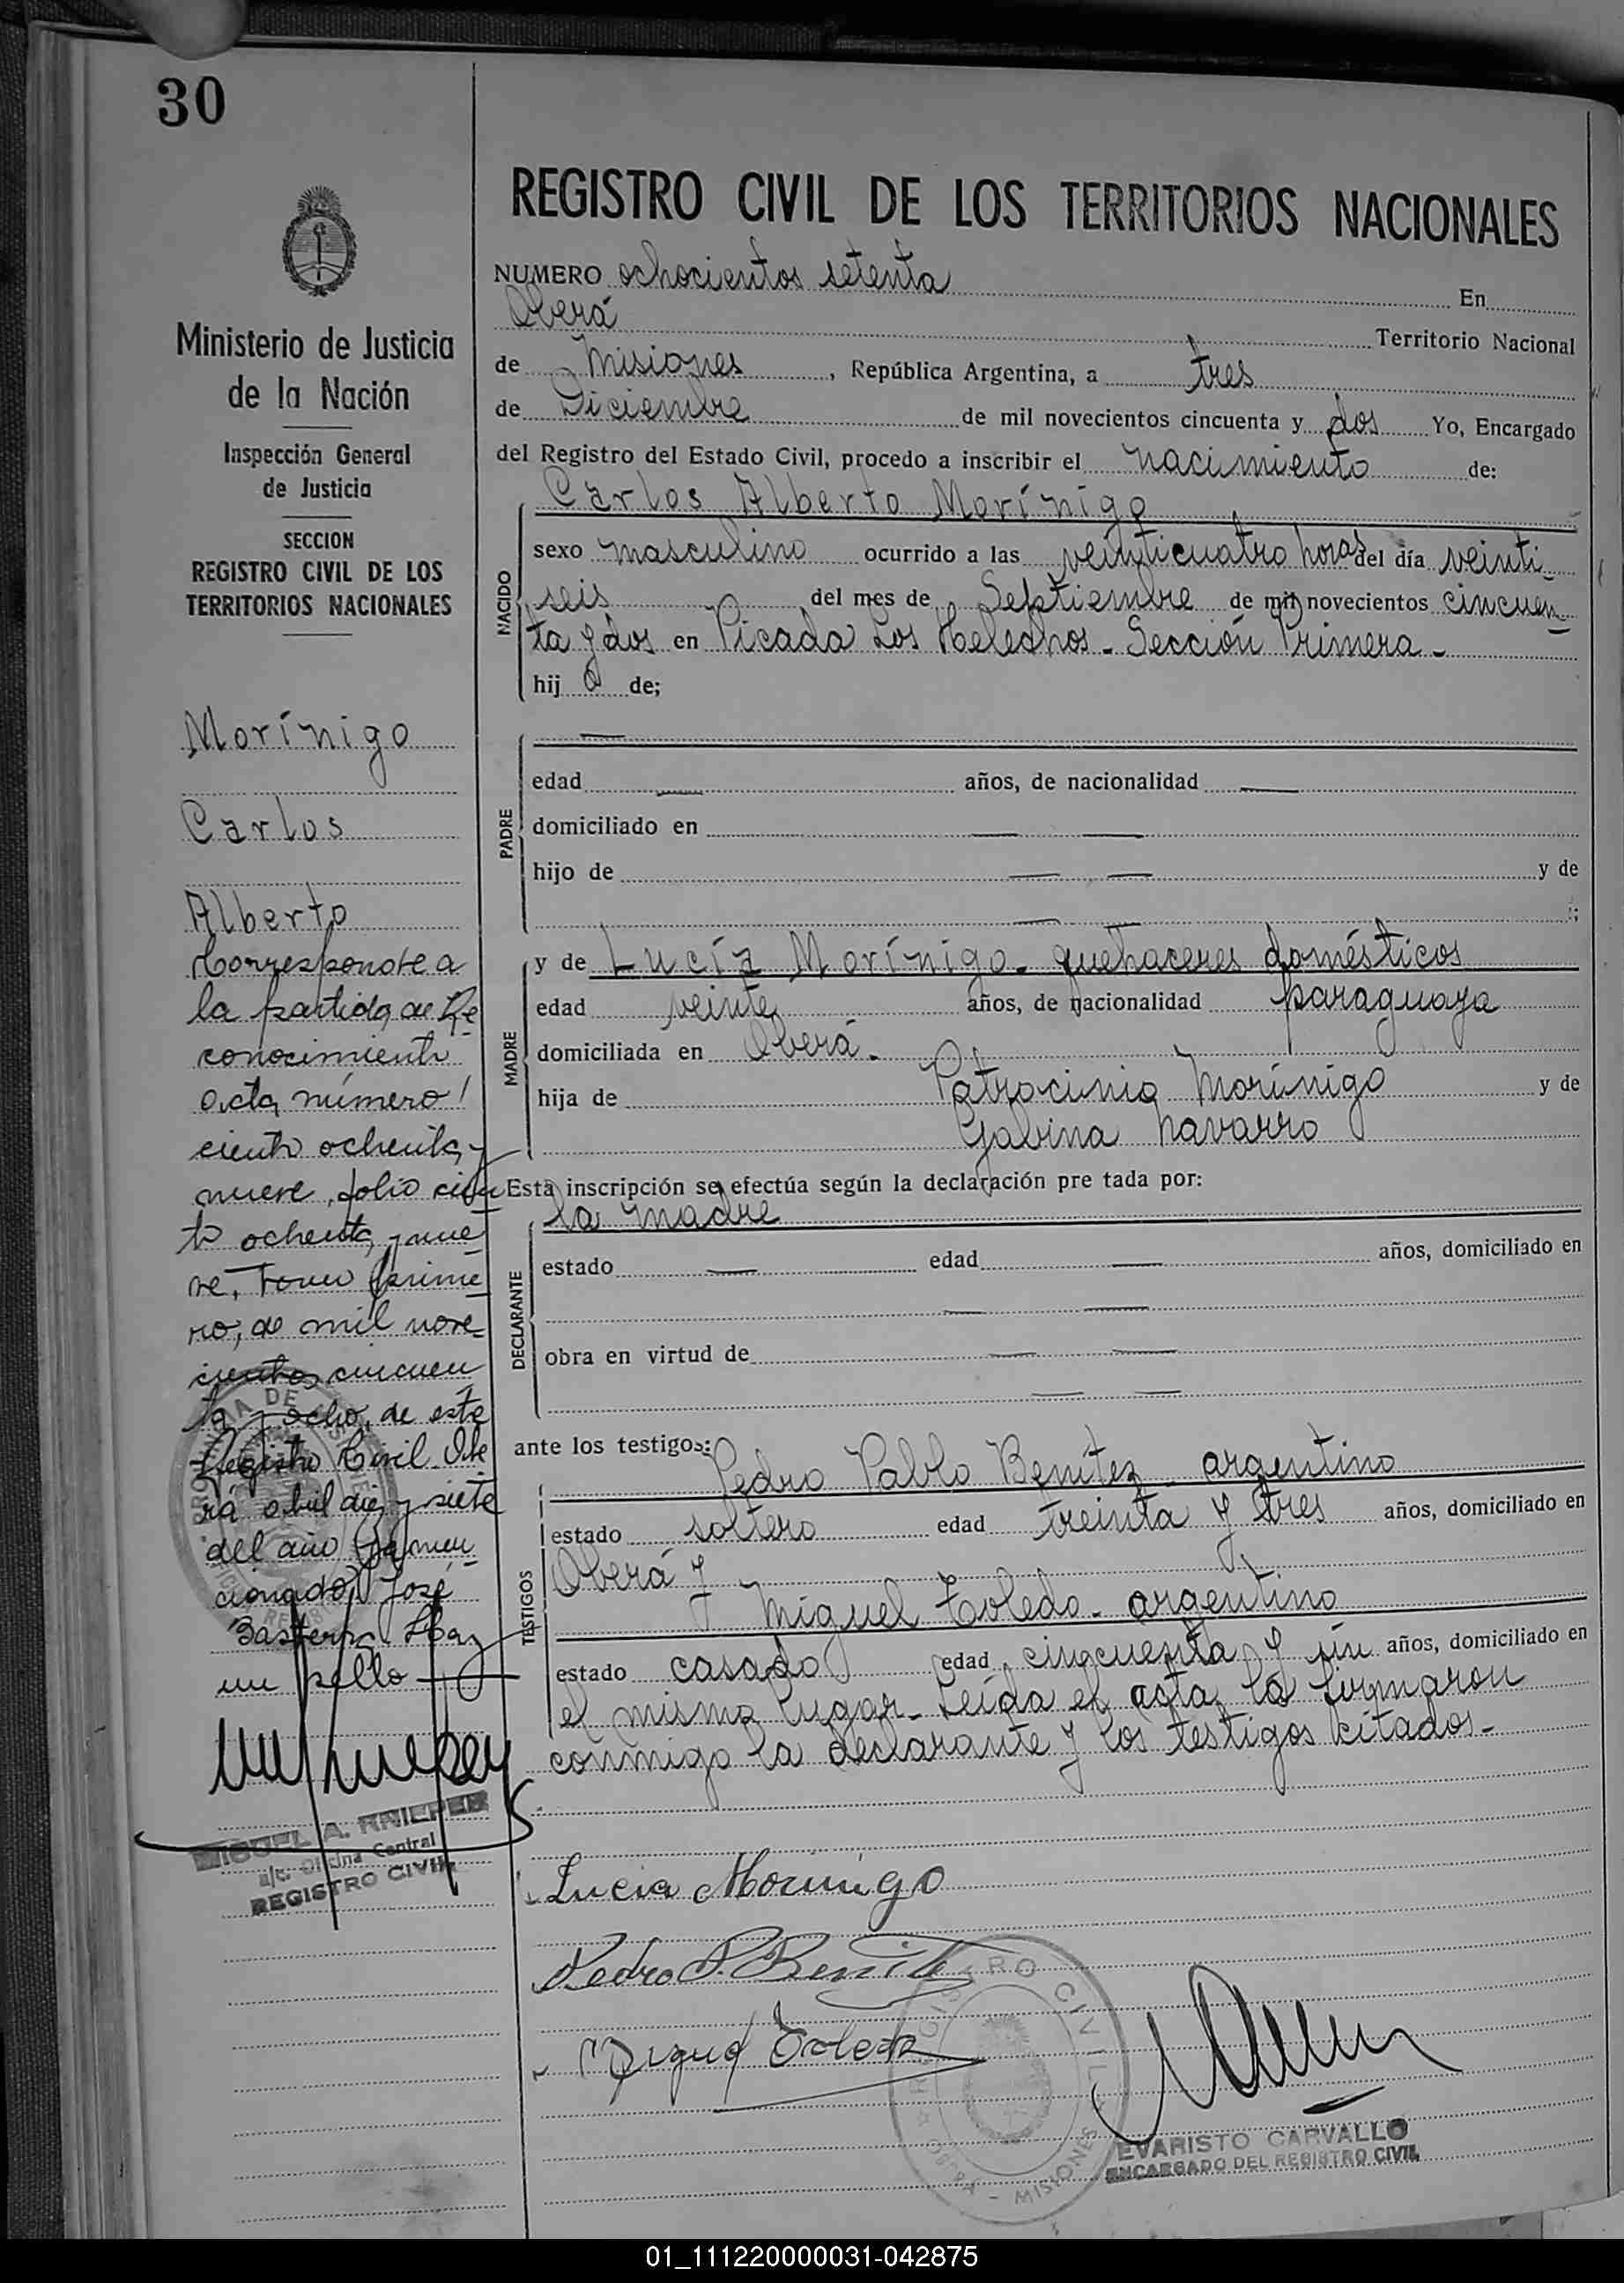 30
Ministerio de Justicia
de la Nación
Inspección General
de Justicia
SECCION
REGISTRO CIVIL DE LOS
TERRITORIOS NACIONALES
Morínigo
Carlos
Alberto
Corresponde a
la partida de Re
conocimiento
acta número
ciento ochenta y
nueve, folio cien
to ochenta y nue
ve, tomo prime
ro, de mil nove
cientos cincuen
ta y ocho, de este
Registro Civil. Obe
rá abril diez y siete
del año ya men
cionado. José
un sello
MIGUEL A.
a/c. Oficina Central
REGISTRO CIVIL
REGISTRO CIVIL DE LOS TERRITORIOS NACIONALES
NUMERO ochocientos setenta En
Oberá Territorio Nacional
de Misiones, República Argentina, a tres
de Diciembre de mil novecientos cincuenta y dos Yo, Encargado
del Registro del Estado Civil, procedo a inscribir el nacimiento de:
Carlos Alberto Morínigo
NACIDO
sexo masculino ocurrido a las veinticuatro horas del día veinti
seis del mes de Septiembre de mil novecientos cincuen
ta y dos en Picada Los Helechos - Sección Primera -
hij o de;
PADRE
edad años, de nacionalidad
domiciliado en
hijo de y de
MADRE
y de Lucía Morínigo - quehaceres domésticos
edad veinte años, de nacionalidad paraguaya
domiciliada en Oberá -
hija de Patrocinia Morínigo y de
Gabina Navarro
Esta inscripción se efectúa según la declaración pre tada por:
la madre
DECLARANTE
estado edad años, domiciliado en
obra en virtud de
ante los testigos: Pedro Pablo Benítez - argentino
TESTIGOS
estado soltero edad treinta y tres años, domiciliado en
Oberá y
Miguel Toledo - argentino
estado casado edad cincuenta y un años, domiciliado en
el mismo lugar - Leída el acta, la firmaron
conmigo la declarante y los testigos citados -
Lucia Morinigo
Pedro P. Benitez
Miguel Toledo
REGISTRO CIVIL
OBERA - MISIONES
EVARISTO CARVALLO
ENCARGADO DEL REGISTRO CIVIL
01_111220000031-042875